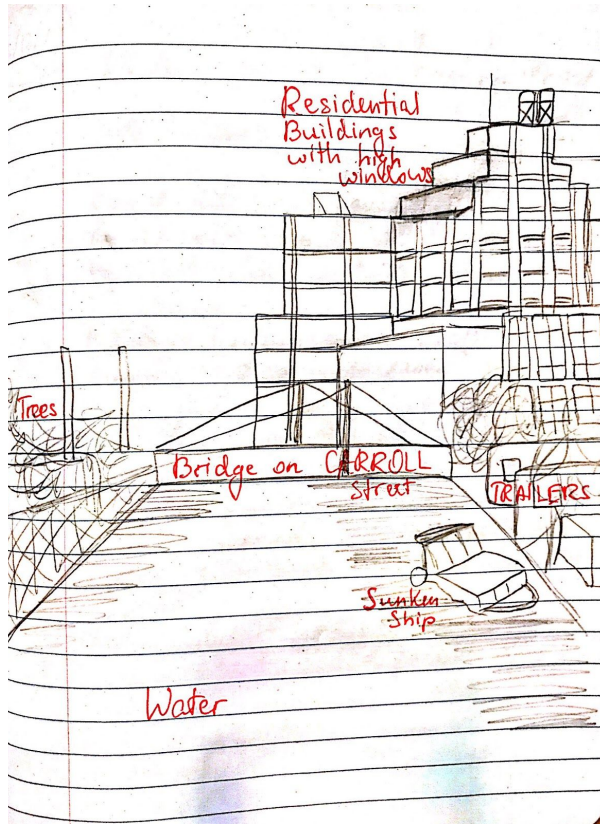 Residential
Buildings
with high
windows
Trees
Bridge on CARROLL
Street
TRAILERS
Sunken
Ship
Water